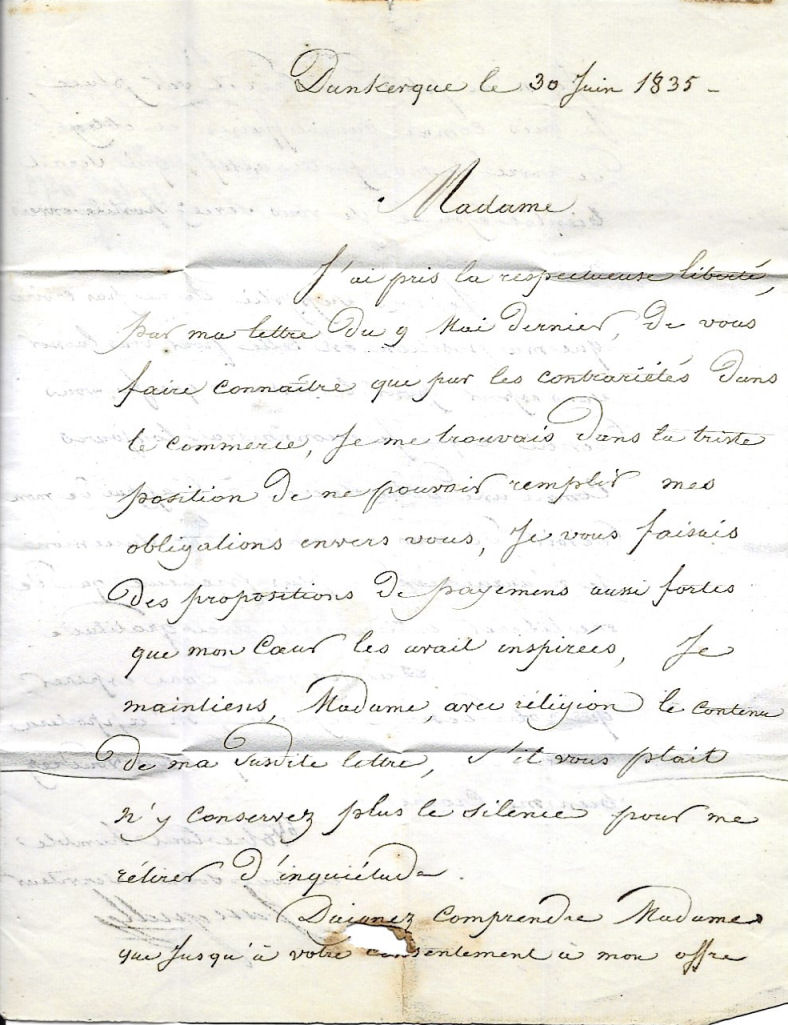 Dunkerque le 30 Juin 1835 -
Madame
J'ai pris la respectueuse liberté,
par ma lettre du 9 Mai dernier, de vous
faire connaître que par les contrariétés dans
le commerce, Je me trouvais dans la triste
position de ne pouvoir remplir mes
obligations envers vous, Je vous faisais
des propositions de payemens aussi fortes
que mon Cœur les avait inspirées, Je
maintiens, Madame, avec réligion le contenu
de ma susdite lettre, s'il vous plait
n'y conservez plus le silence pour me
rétirer d'inquiétude.
Daignez comprendre Madame
que Jusqu'à votre consentement à mon offre